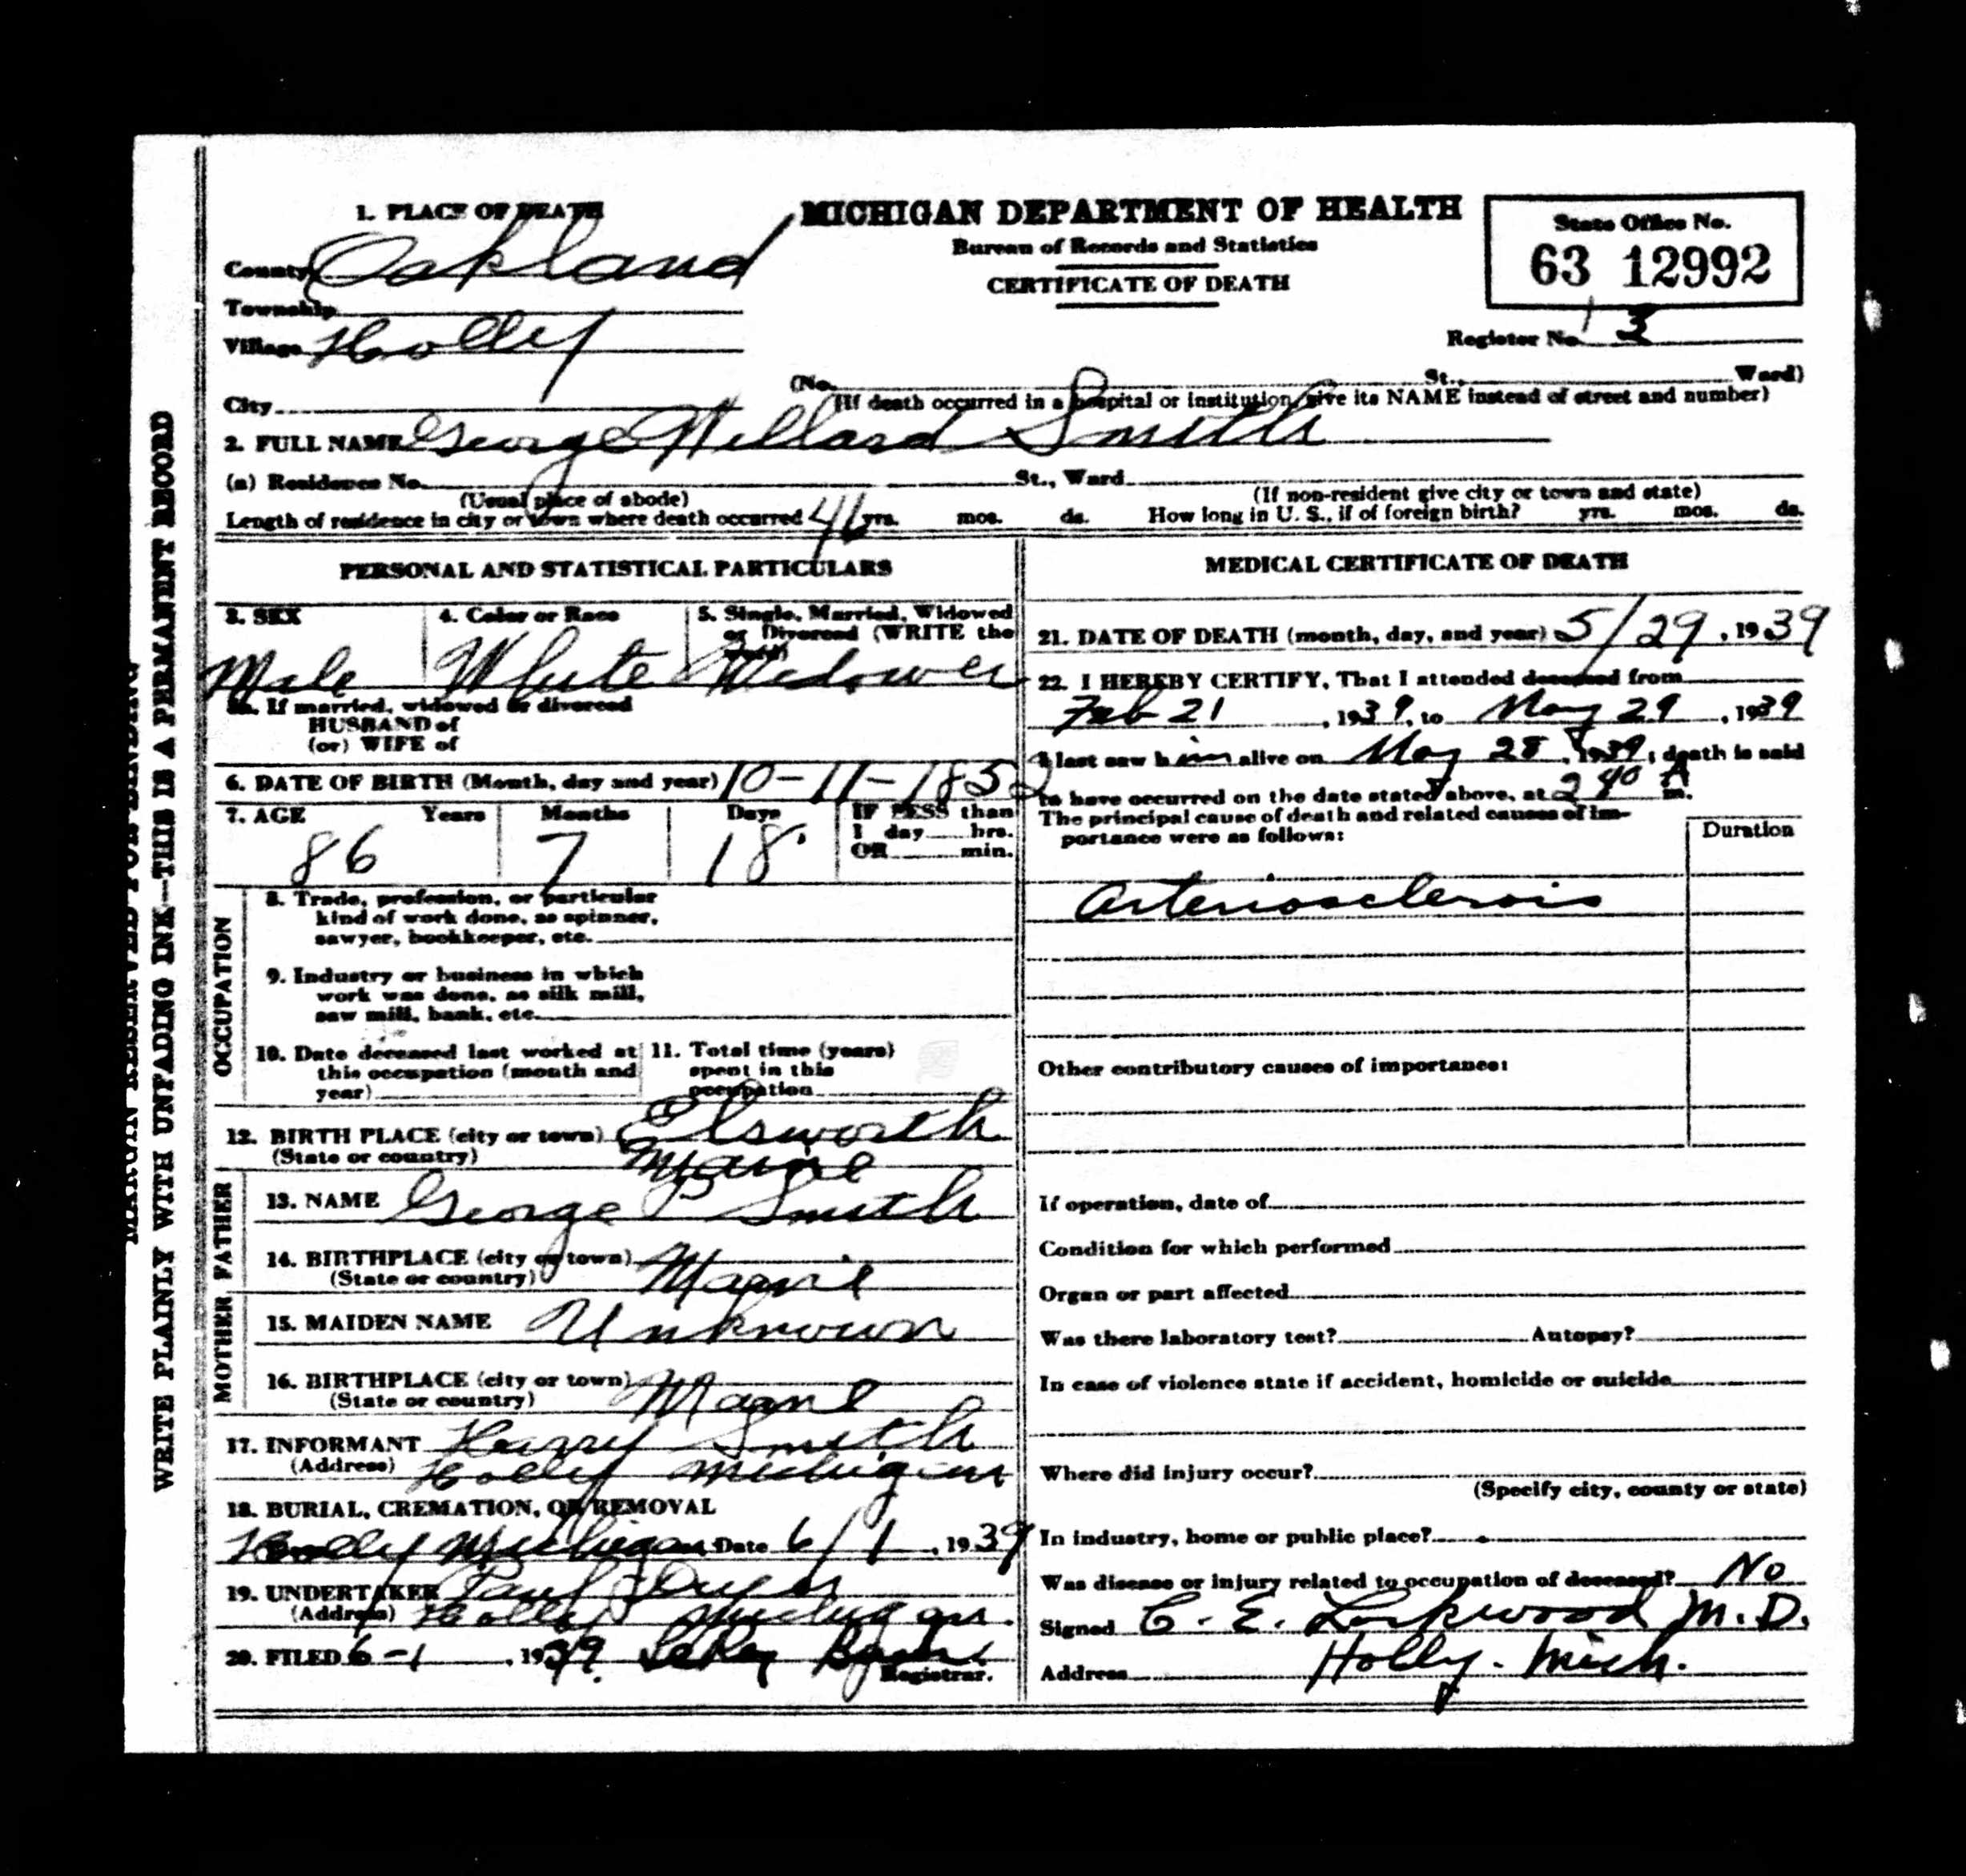 MARGIN RESERVED FOR BINDING
WRITE PLAINLY WITH UNFADING INK—THIS IS A PERMANENT RECORD
MICHIGAN DEPARTMENT OF HEALTH
Bureau of Records and Statistics
CERTIFICATE OF DEATH
State Office No.
63 12992
Register No. 13
1. PLACE OF DEATH
County Oakland
Township
Village Holly
City
(No. St., Ward)
(If death occurred in a hospital or institution, give its NAME instead of street and number)
2. FULL NAME George Willard Smith
(a) Residence No. St., Ward
(Usual place of abode) (If non-resident give city or town and state)
Length of residence in city or town where death occurred 46 yrs. mos. ds. How long in U. S., if of foreign birth? yrs. mos. ds.
PERSONAL AND STATISTICAL PARTICULARS
3. SEX 4. Color or Race 5. Single, Married, Widowed
or Divorced (WRITE the
word)
Male White Widower
5a. If married, widowed or divorced
HUSBAND of
(or) WIFE of
6. DATE OF BIRTH (Month, day and year) 10-11-1852
7. AGE Years Months Days IF LESS than
1 day hrs.
OR min.
86 7 18
OCCUPATION
8. Trade, profession, or particular
kind of work done, as spinner,
sawyer, bookkeeper, etc.
9. Industry or business in which
work was done, as silk mill,
saw mill, bank, etc.
10. Date deceased last worked at
this occupation (month and
year)
11. Total time (years)
spent in this
occupation
12. BIRTH PLACE (city or town) Elsworth
(State or country) Maine
FATHER
13. NAME George P Smith
14. BIRTHPLACE (city or town)
(State or country) Maine
MOTHER
15. MAIDEN NAME Unknown
16. BIRTHPLACE (city or town)
(State or country) Maine
17. INFORMANT Harry Smith
(Address) Holly Michigan
18. BURIAL, CREMATION, OR REMOVAL
Holly Michigan Date 6/1, 1939
19. UNDERTAKER Paul Dryer
(Address) Holly Michigan.
20. FILED 6-1, 1939. LeRoy
Registrar.
MEDICAL CERTIFICATE OF DEATH
21. DATE OF DEATH (month, day, and year) 5/29, 1939
22. I HEREBY CERTIFY, That I attended deceased from
Feb 21, 1939, to May 29, 1939
I last saw him alive on May 28, 1939; death is said
to have occurred on the date stated above, at 2 40 A m.
The principal cause of death and related causes of im-
portance were as follows:
Duration
Arteriosclerosis
Other contributory causes of importance:
If operation, date of
Condition for which performed
Organ or part affected
Was there laboratory test? Autopsy?
In case of violence state if accident, homicide or suicide
Where did injury occur?
(Specify city, county or state)
In industry, home or public place?
Was disease or injury related to occupation of deceased? No
Signed C. E. Lockwood M.D.
Address Holly. Mich.